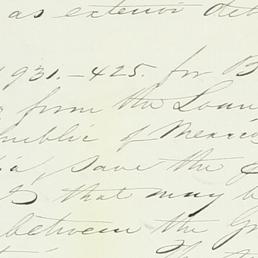 as exterior deb
931.-425. for B
from the Loan
public of Mexico
save the
that may b
between the G